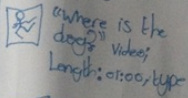 "Where is the
dog?" Video;
Length: 01:00, type